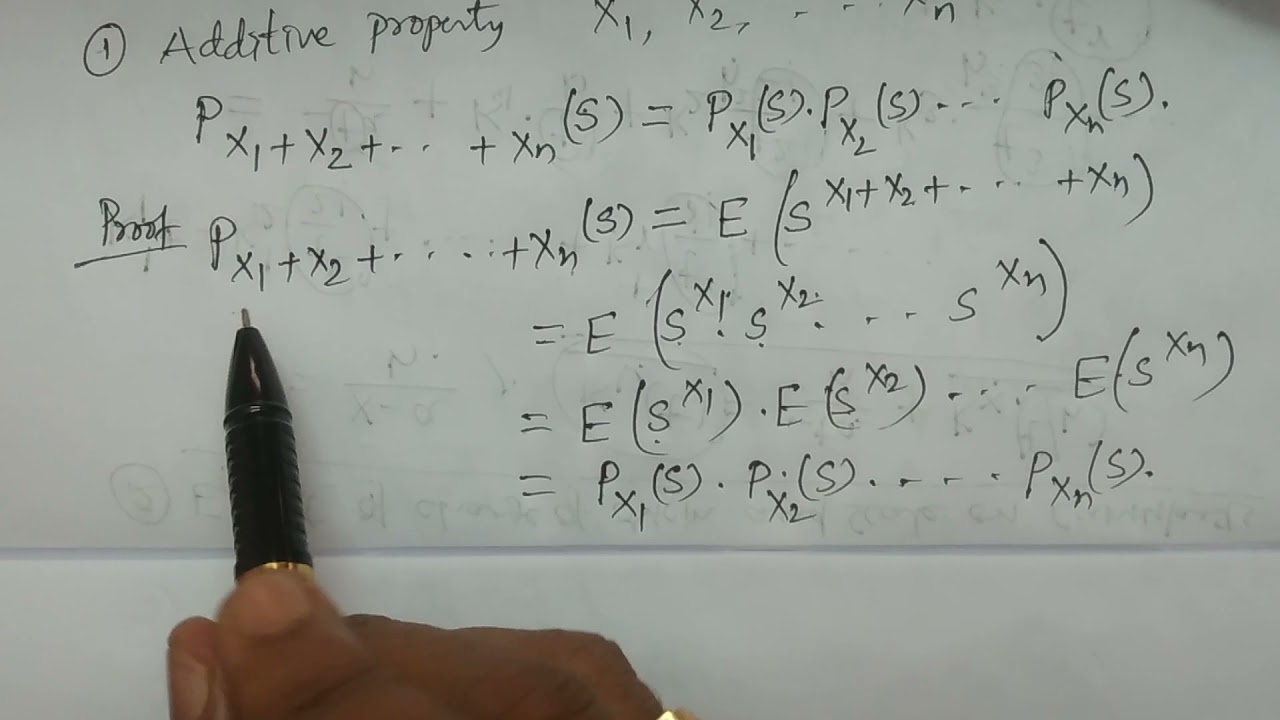 ① Additive property X₁, X₂, . . . Xₙ
P_{X₁+X₂+... +Xₙ}(S) = P_{X₁}(S).P_{X₂}(S)... P_{Xₙ}(S).
Proof P_{X₁+X₂+.....+Xₙ}(S) = E(S^{X₁+X₂+... +Xₙ})
= E(S^{X₁}.S^{X₂}.... S^{Xₙ})
= E(S^{X₁}).E(S^{X₂}).... E(S^{Xₙ})
= P_{X₁}(S).P_{X₂}(S)..... P_{Xₙ}(S).